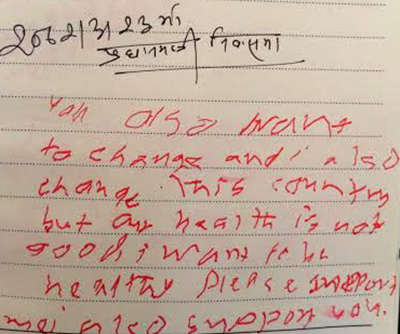 २०७२।३।२३ मा
प्रधानमन्त्री निवासमा
You also want
to change and i also
change this country
but my health is not
good i want to be
healthy please support
me i also support you.